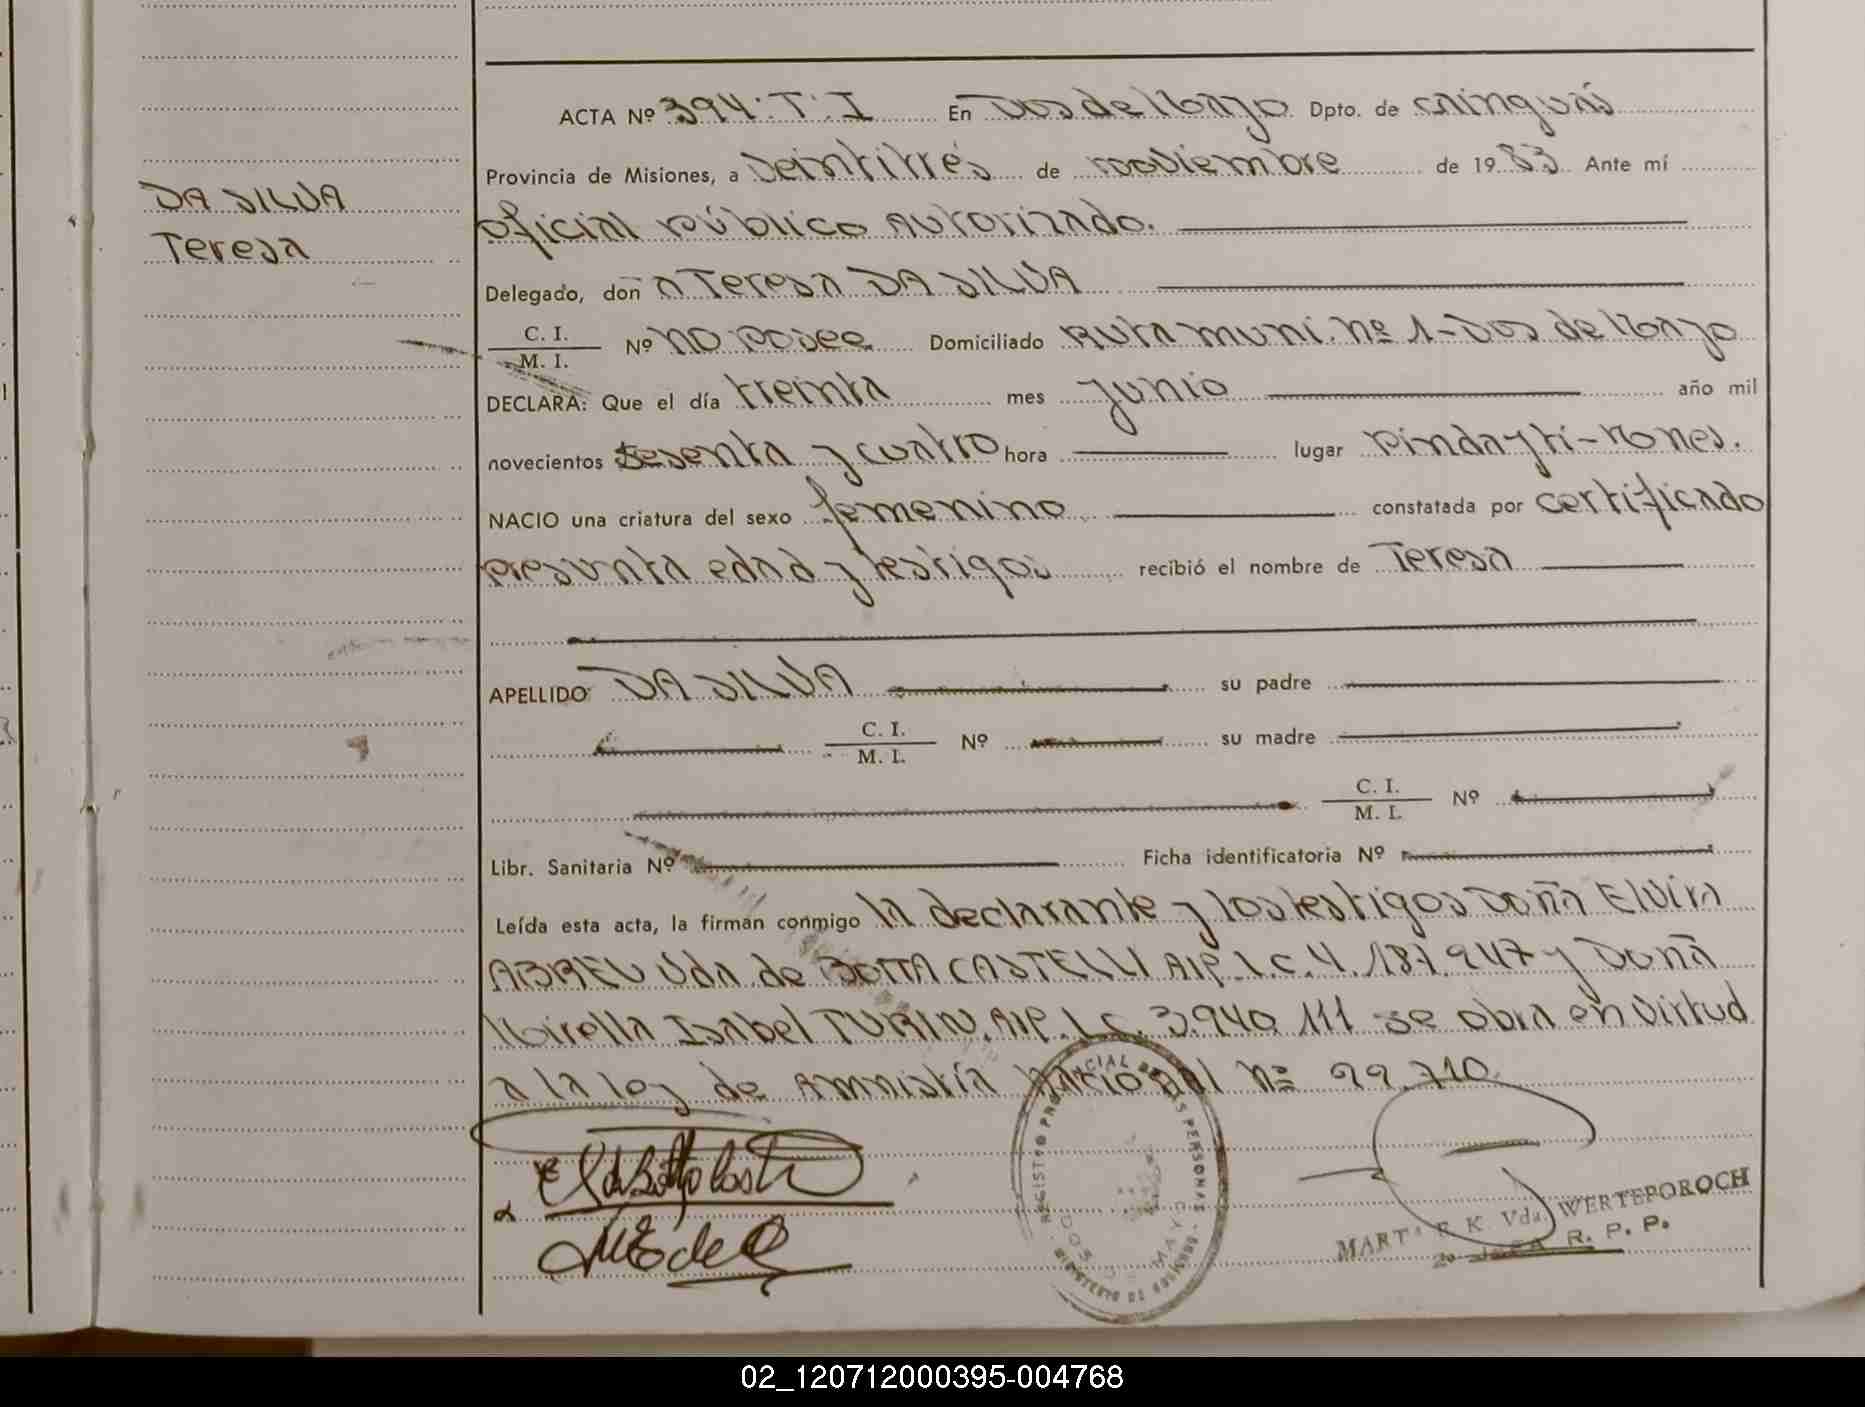 DA SILVA
Teresa
ACTA Nº 394. T. I En Dos de Mayo Dpto. de cainguás
Provincia de Misiones, a veintitres de noviembre de 1983 Ante mí
oficial público autorizado.
Delegado, don a Teresa DA SILVA
C. I.
M. I.
Nº no posee Domiciliado Ruta muni. nº 1-Dos de Mayo
DECLARA: Que el día treinta mes junio año mil
novecientos sesenta y cuatro hora lugar Pindayti-Mones.
NACIO una criatura del sexo femenino constatada por certificado
presunta edad y testigos recibió el nombre de Teresa
APELLIDO DA SILVA su padre
C. I.
M. I.
Nº su madre
C. I.
M. I.
Nº
Libr. Sanitaria Nº Ficha identificatoria Nº
Leída esta acta, la firman conmigo la declarante y los testigos Doña Elvira
ABREU Vda. de BOTTA CASTELLI AIP. L.C. 4.187.247 y Doña
Mirella Isabel TURIN. AIP. L.C. 3.940.111 se obra en virtud
a la ley de Amnistía Nacional nº 22.710.
REGISTRO PROVINCIAL DE LAS PERSONAS
DOS DE MAYO
MINISTERIO DE GOBIERNO
MARTA E. K. Vda. WERTEPOROCH
R. P. P.
02_120712000395-004768